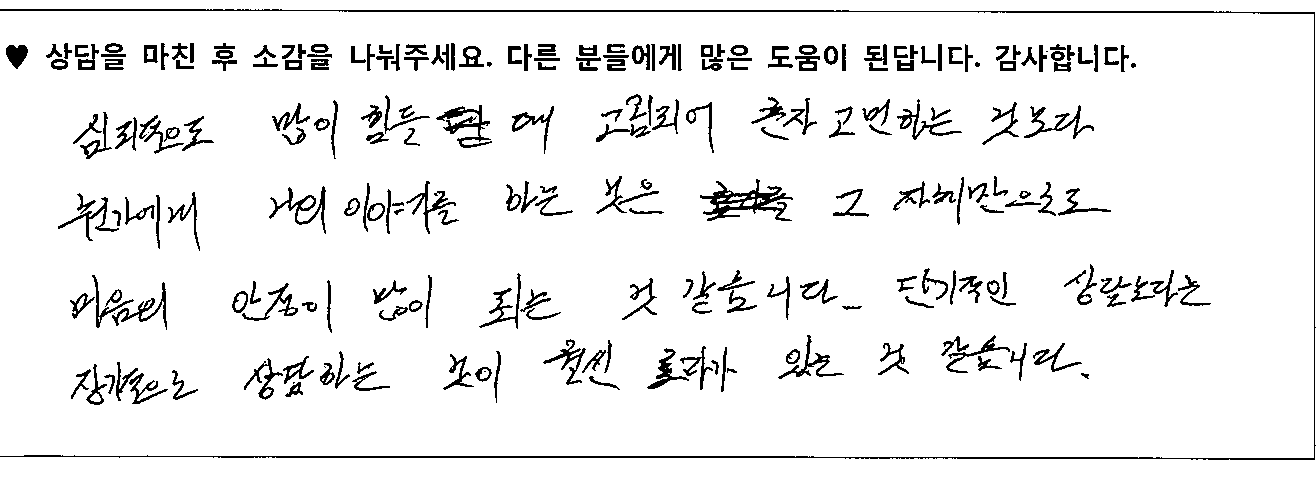 ♥ 상담을 마친 후 소감을 나눠주세요. 다른 분들에게 많은 도움이 된답니다. 감사합니다.
심리적으로 많이 힘들 때 고립되어 혼자 고민하는 것보다
누군가에게 나의 이야기를 하는 것은 그 자체만으로도
마음의 안정이 많이 되는 것 같습니다. 단기적인 상담보다는
장기적으로 상담하는 것이 훨씬 효과가 있는 것 같습니다.